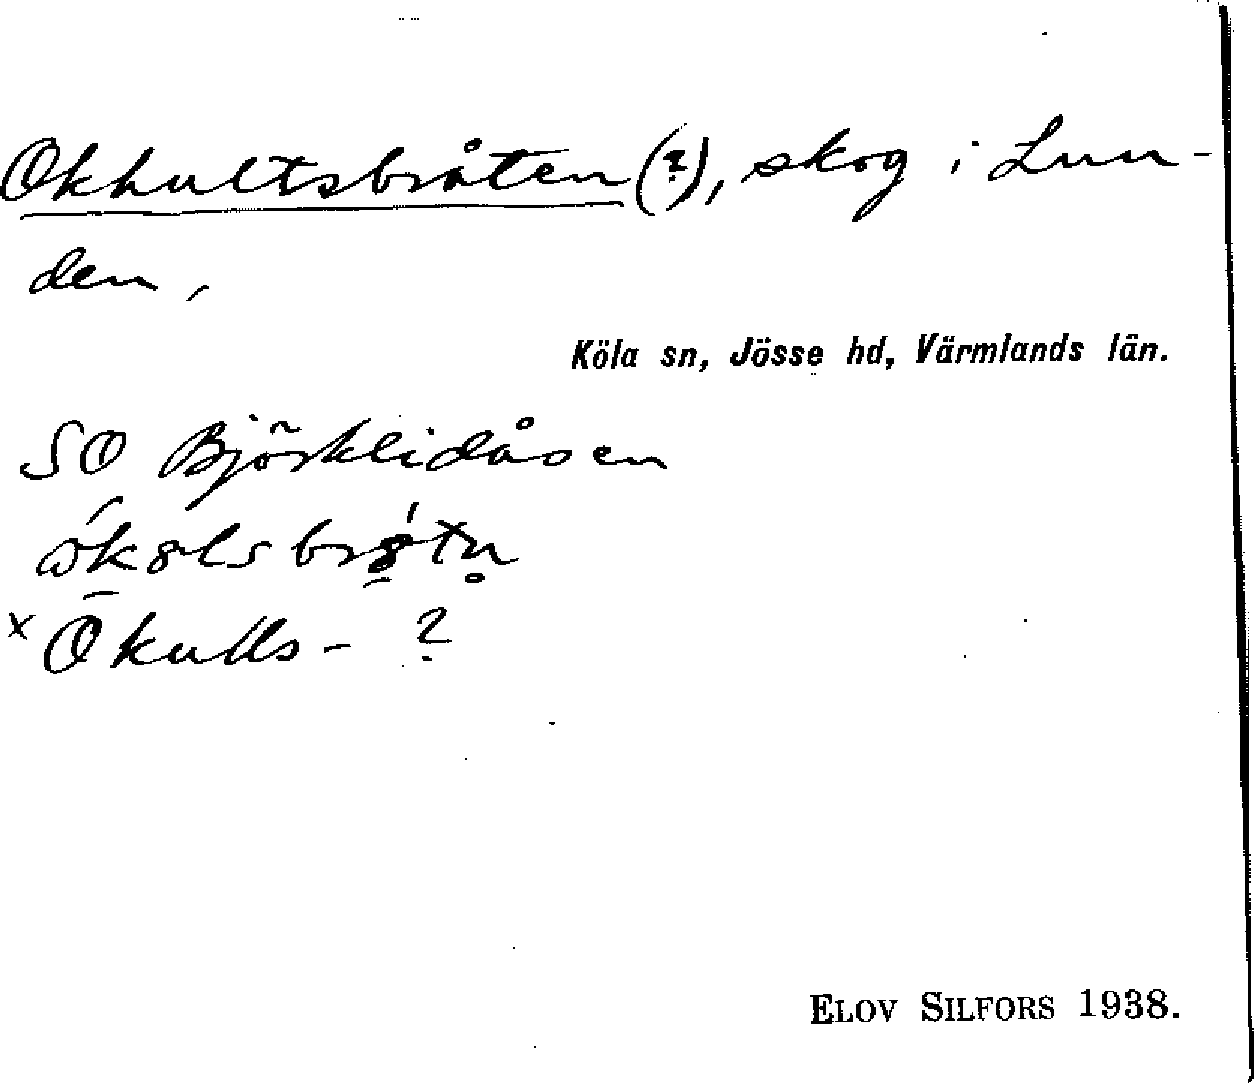 Okhultsbråten (?), skog i Lun-
den,
Köla sn, Jösse hd, Värmlands län.
SO Björklidåsen
x Okulls- ?
ELOV SILFORS 1938.